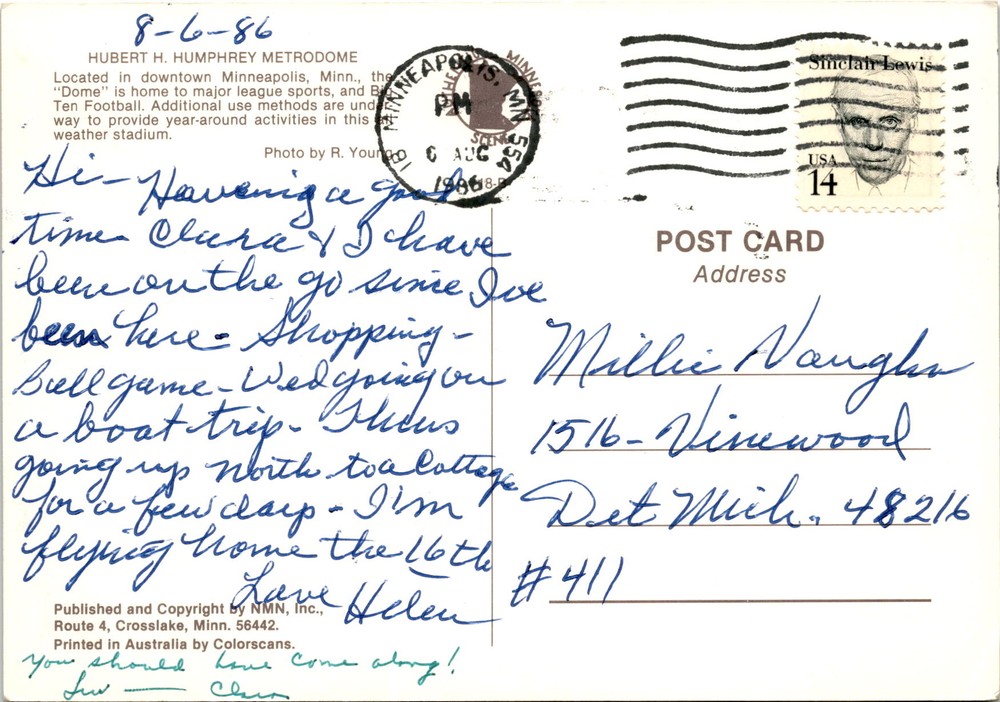 8-6-86
HUBERT H. HUMPHREY METRODOME
Located in downtown Minneapolis, Minn., the
"Dome" is home to major league sports, and B
Ten Football. Additional use methods are und
way to provide year-around activities in this
weather stadium.
Photo by R. Young
MINNEAPOLIS, MN 554
PM
6 AUG
1986
18-B
SCENE
Sinclair Lewis
USA
14
Hi - Having a good
time. Clara & I have
been on the go since I've
been here - Shopping -
Ball game - Wed going on
a boat trip - Thurs
going up north to a Cottage
for a few days - I'm
flying home the 16th
Love Helen
POST CARD
Address
Millie Vaughn
1516 - Vinewood
Det Mich. 48216
#411
Published and Copyright by NMN, Inc.,
Route 4, Crosslake, Minn. 56442.
Printed in Australia by Colorscans.
You should have come along!
Luv — Clara